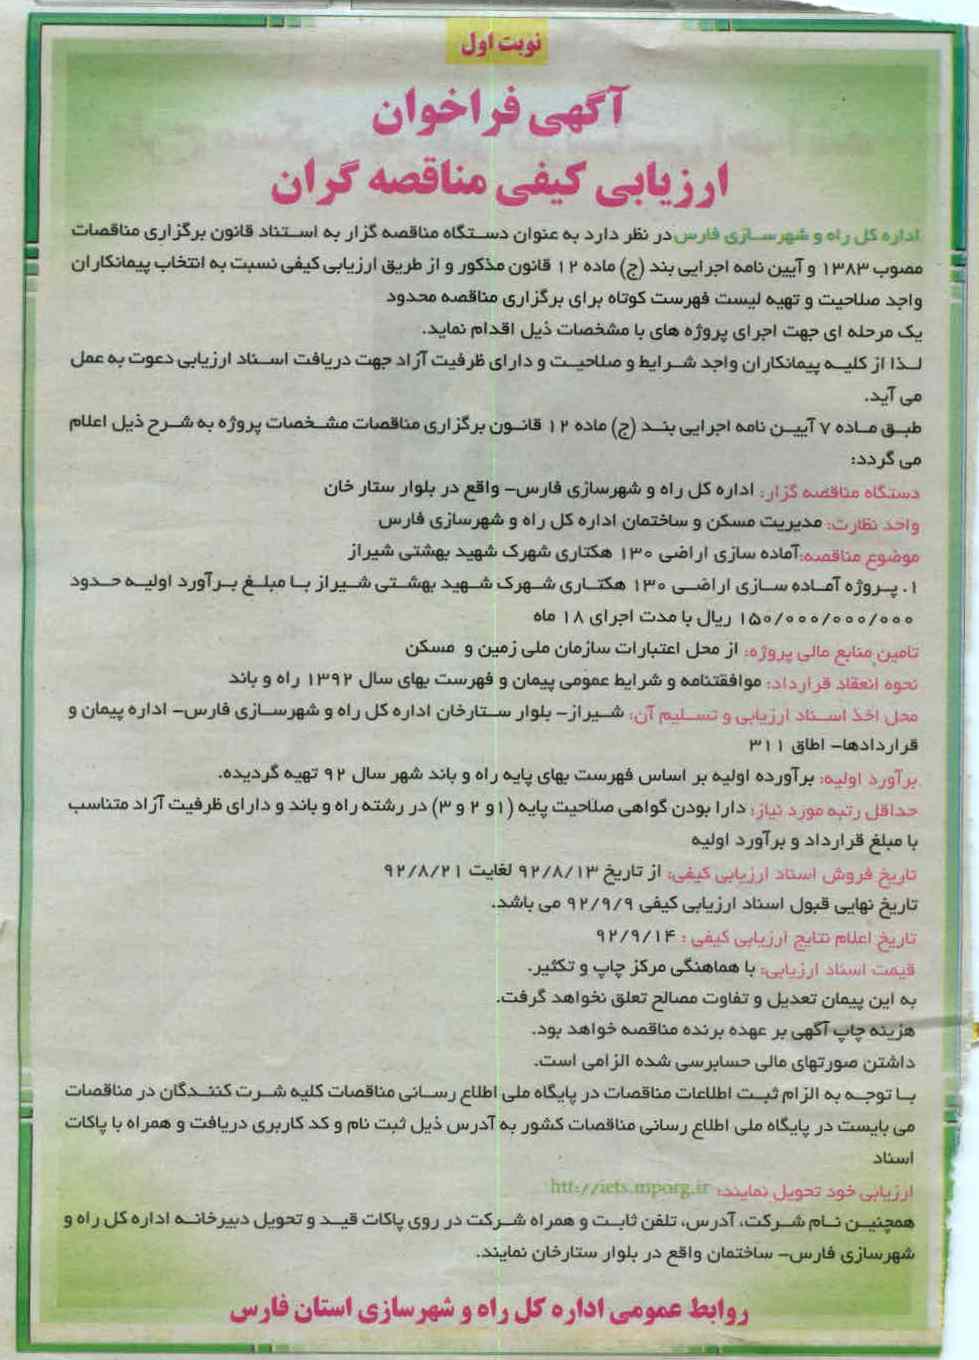 نوبت اول
آگهی فراخوان
ارزیابی کیفی مناقصه گران
اداره کل راه و شهرسازی فارس در نظر دارد به عنوان دستگاه مناقصه گزار به استناد قانون برگزاری مناقصات
مصوب ۱۳۸۳ و آیین نامه اجرایی بند (ج) ماده ۱۲ قانون مذکور و از طریق ارزیابی کیفی نسبت به انتخاب پیمانکاران
واجد صلاحیت و تهیه لیست فهرست کوتاه برای برگزاری مناقصه محدود
یک مرحله ای جهت اجرای پروژه های با مشخصات ذیل اقدام نماید.
لذا از کلیه پیمانکاران واجد شرایط و صلاحیت و دارای ظرفیت آزاد جهت دریافت اسناد ارزیابی دعوت به عمل
می آید.
طبق ماده ۷ آیین نامه اجرایی بند (ج) ماده ۱۲ قانون برگزاری مناقصات مشخصات پروژه به شرح ذیل اعلام
می گردد:
دستگاه مناقصه گزار: اداره کل راه و شهرسازی فارس- واقع در بلوار ستار خان
واحد نظارت: مدیریت مسکن و ساختمان اداره کل راه و شهرسازی فارس
موضوع مناقصه:آماده سازی اراضی ۱۳۰ هکتاری شهرک شهید بهشتی شیراز
۱. پروژه آماده سازی اراضی ۱۳۰ هکتاری شهرک شهید بهشتی شیراز با مبلغ برآورد اولیه حدود
۱۵۰/۰۰۰/۰۰۰/۰۰۰ ریال با مدت اجرای ۱۸ ماه
تامین منابع مالی پروژه: از محل اعتبارات سازمان ملی زمین و مسکن
نحوه انعقاد قرارداد: موافقتنامه و شرایط عمومی پیمان و فهرست بهای سال ۱۳۹۲ راه و باند
محل اخذ اسناد ارزیابی و تسلیم آن: شیراز- بلوار ستارخان اداره کل راه و شهرسازی فارس- اداره پیمان و
قراردادها- اطاق ۳۱۱
برآورد اولیه: برآورده اولیه بر اساس فهرست بهای پایه راه و باند شهر سال ۹۲ تهیه گردیده.
حداقل رتبه مورد نیاز: دارا بودن گواهی صلاحیت پایه (۱و ۲ و ۳) در رشته راه و باند و دارای ظرفیت آزاد متناسب
با مبلغ قرارداد و برآورد اولیه
تاریخ فروش اسناد ارزیابی کیفی: از تاریخ ۹۲/۸/۱۳ لغایت ۹۲/۸/۲۱
تاریخ نهایی قبول اسناد ارزیابی کیفی ۹۲/۹/۹ می باشد.
تاریخ اعلام نتایج ارزیابی کیفی : ۹۲/۹/۱۴
قیمت اسناد ارزیابی: با هماهنگی مرکز چاپ و تکثیر.
به این پیمان تعدیل و تفاوت مصالح تعلق نخواهد گرفت.
هزینه چاپ آگهی بر عهده برنده مناقصه خواهد بود.
داشتن صورتهای مالی حسابرسی شده الزامی است.
با توجه به الزام ثبت اطلاعات مناقصات در پایگاه ملی اطلاع رسانی مناقصات کلیه شرت کنندگان در مناقصات
می بایست در پایگاه ملی اطلاع رسانی مناقصات کشور به آدرس ذیل ثبت نام و کد کاربری دریافت و همراه با پاکات
اسناد
ارزیابی خود تحویل نمایند: htt://iets.mporg.ir
همچنین نام شرکت، آدرس، تلفن ثابت و همراه شرکت در روی پاکات قید و تحویل دبیرخانه اداره کل راه و
شهرسازی فارس- ساختمان واقع در بلوار ستارخان نمایند.
روابط عمومی اداره کل راه و شهرسازی استان فارس